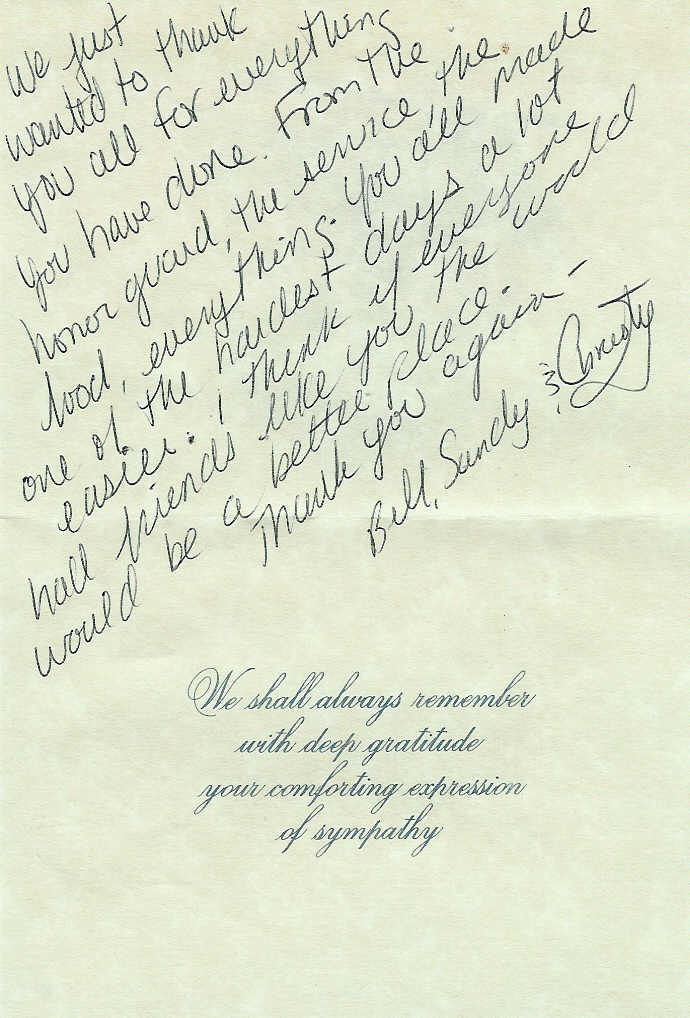 We just
wanted to thank
you all for everything
you have done. From the
honor guard, the service the
food, everything. You all made
one of the hardest days a lot
easier. I think if everyone
had friends like you the world
would be a better place.
Thank you again -
Bill, Sandy & Christy
We shall always remember
with deep gratitude
your comforting expression
of sympathy